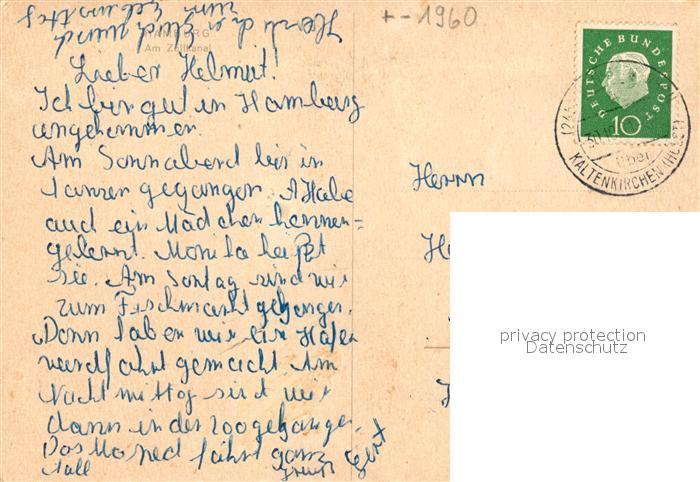 Herzlichen Glückwunsch
zum Geburtstag
HAMBURG
Am Zollkanal
+-1960
Lieber Helmut!
Ich bin gut in Hamburg
angekommen.
Am Sonnabend bin ich
tanzen gegangen. Habe
auch ein Mädchen kennen=
gelernt. Monika heißt
sie. Am Sontag sind wir
zum Fischmarkt gegangen.
Dann haben wir eine Hafen
rundfahrt gemacht. Am
Nachmittag sind wir
dann in den zoo gegangen.
Das Moped fährt ganz
toll
Gruß Gert
DEUTSCHE BUNDESPOST
10
(24
30.
über
KALTENKIRCHEN (HOLST)
Herrn
privacy protection
Datenschutz